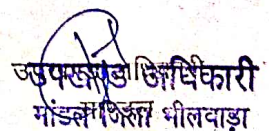 उपखण्ड अधिकारी
मांडल जिला भीलवाडा